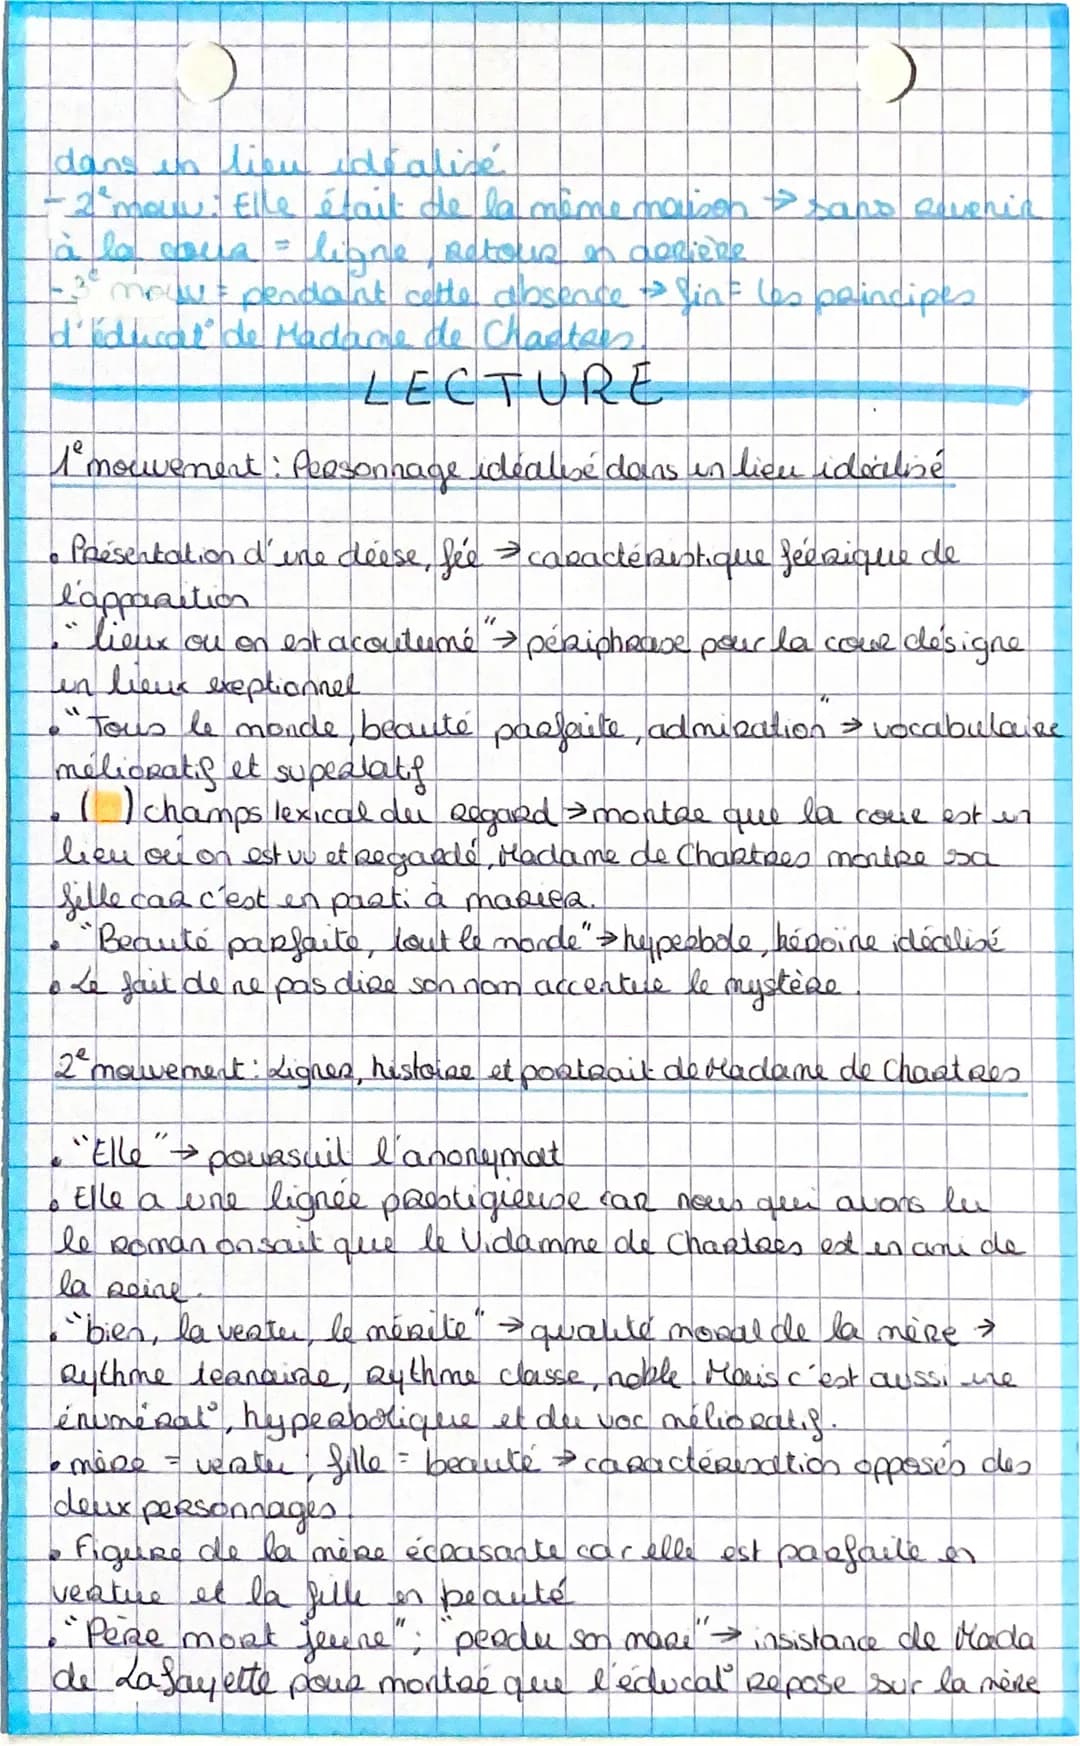 dans un lieu idéalisé.
- 2e mouv: Elle était de la même maison → sans revenir
à la cour = ligne, retour en arrière
- 3e mouv = pendant cette absence → fin = les principes
d'éducat° de Madame de Chartres.
LECTURE
1e mouvement : Personnage idéalisé dans un lieu idéalisé
• Présentation d'une déese, fée → caractéristique féérique de
l'apparition
• "lieux ou on est acoutumé" → périphrase pour la cour désigne
un lieux exeptionnel
• "Tous le monde, beauté parfaite, admiration" → vocabulaire
mélioratif et superlatif
• ( ) champs lexical du regard → montre que la cour est un
lieu où on est vu et regardé, Madame de Chartres montre sa
fille car c'est en parti à marier.
• "Beauté parfaite, tout le monde" → hyperbole, héroïne idéalisé
• Le fait de ne pas dire son nom accentue le mystère.
2e mouvement : Lignes, histoire et portrait de Madame de Chartres
• "Elle" → poursuit l'anonymat
• Elle a une lignée prestigieuse car nous qui avons lu
le roman on sait que le Vidamme de Chartres est un ami de
la reine.
• "bien, la vertu, le mérite" → qualité moral de la mère →
rythme ternaire, rythme classe, noble. Mais c'est aussi une
énumérat°, hyperbolique et du voc mélioratif.
• mère = vertu ; fille = beauté → caractérisation opposés des
deux personnages.
• Figure de la mère écrasante car elle est parfaite en
vertue et la fille en beauté
• "Père mort jeune" ; "perdu son mari" → insistance de Mada
de Lafayette pour montré que l'éducat° repose sur la mère